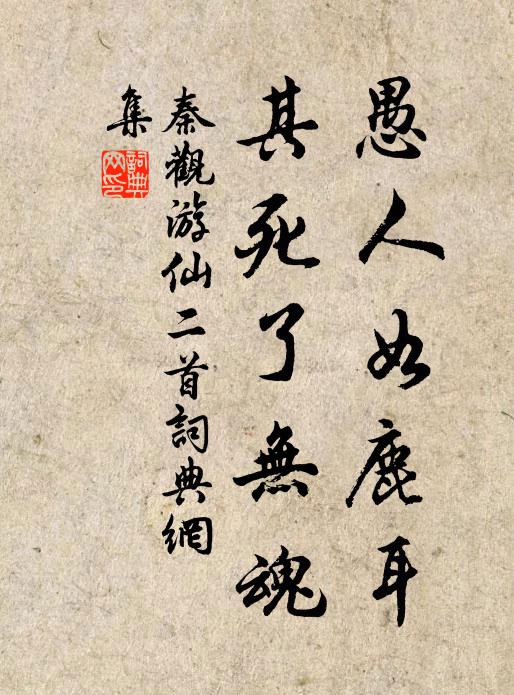 愚人如鹿耳
其死了無魂
秦觀游仙二首詞典網
集
詞典
网印